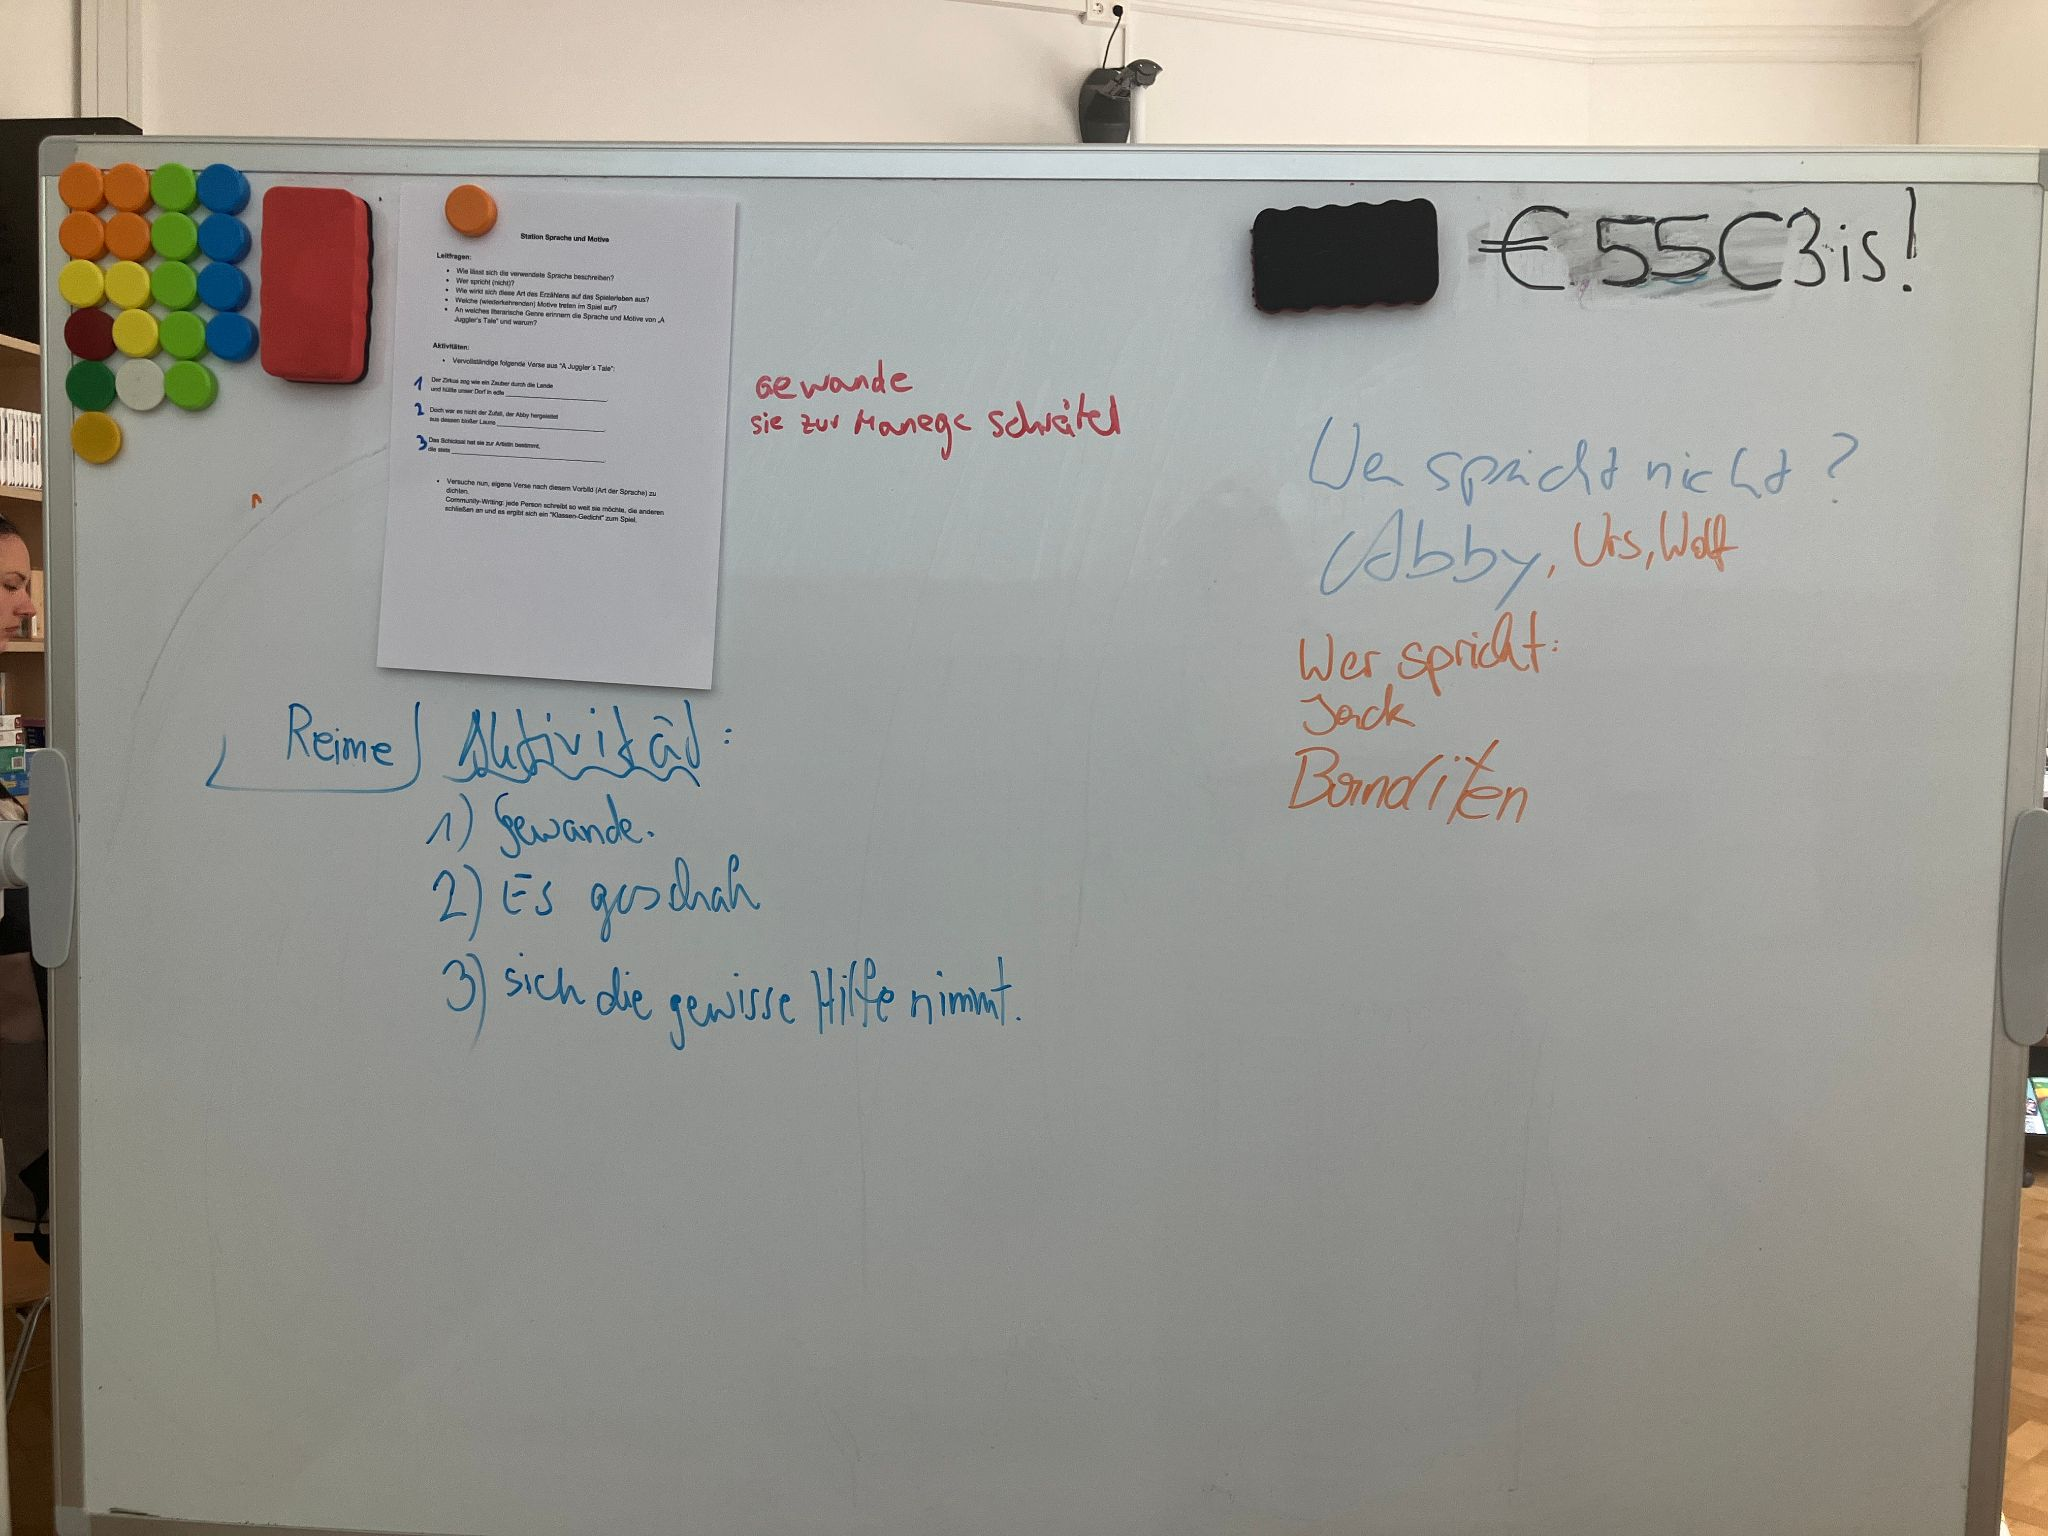 Station Sprache und Motive
Leitfragen:
• Wie lässt sich die verwendete Sprache beschreiben?
• Wer spricht (nicht)?
• Wie wirkt sich diese Art des Erzählens auf das Spielerleben aus?
• Welche (wiederkehrenden) Motive treten im Spiel auf?
• An welches literarische Genre erinnern die Sprache und Motive von „A
Juggler's Tale" und warum?
Aktivitäten:
• Vervollständige folgende Verse aus "A Juggler's Tale":
1 Der Zirkus zog wie ein Zauber durch die Lande
und hüllte unser Dorf in edle
2 Doch war es nicht der Zufall, der Abby hergeleitet
aus dessen bloßer Laune
3 Das Schicksal hat sie zur Artistin bestimmt,
die stets
• Versuche nun, eigene Verse nach diesem Vorbild (Art der Sprache) zu
dichten.
Community-Writing: jede Person schreibt so weit sie möchte, die anderen
schließen an und es ergibt sich ein "Klassen-Gedicht" zum Spiel.
Gewande
sie zur Manege
€ 55C3is!
Wer spricht nicht?
Abby, Urs, Wolf
Wer spricht:
Jack
Banditen
Reime Aktivität:
1) Gewande.
2) Es geschah
3) sich die gewisse Hilfe nimmt.